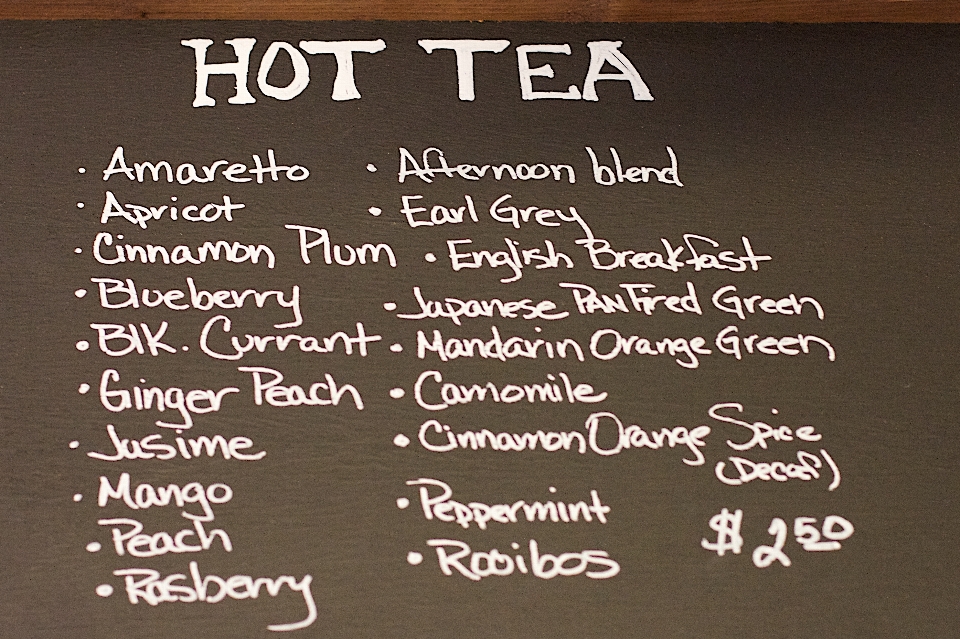 HOT TEA
· Amaretto
· Apricot
· Cinnamon Plum
· Blueberry
· Blk. Currant
· Ginger Peach
· Jasime
· Mango
· Peach
· Rasberry
· Afternoon blend
· Earl Grey
· English Breakfast
· Japanese PAN Fired Green
· Mandarin Orange Green
· Camomile
· Cinnamon Orange Spice
(Decaf)
· Peppermint
· Rooibos
$ 2.50